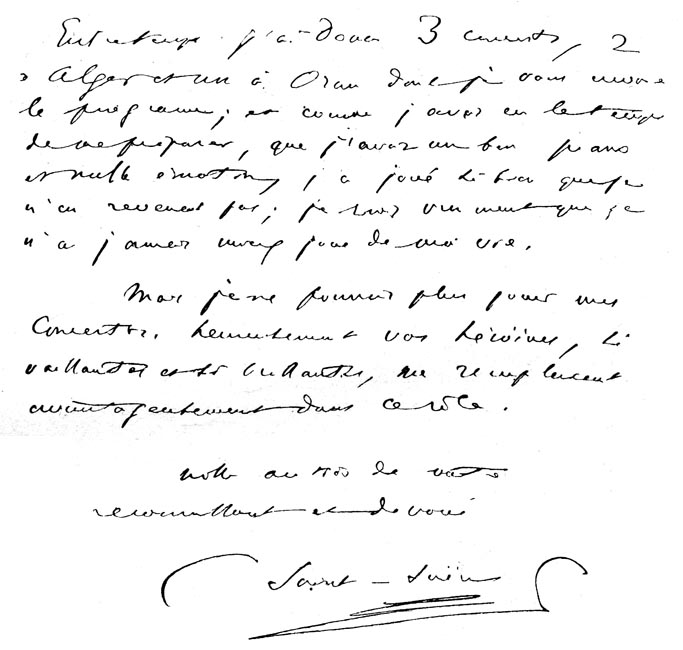 Entretemps j'ai donné 3 concerts, 2
à Alger et un à Oran dont je vous envoie
le programme; et comme j'avais eu le temps
de me préparer, que j'avais un bon piano
et nulle émotion, j'ai joué si bien que je
n'en revenais pas; je crois vraiment que je
n'ai jamais mieux joué de ma vie.
Mais je ne pourrais plus jouer mes
Concertos. Heureusement vos héroïnes, si
vaillantes et si brillantes, me remplacent
avantageusement dans ce rôle.
Mille amitiés de votre
reconnaissant et dévoué
Saint-Saëns